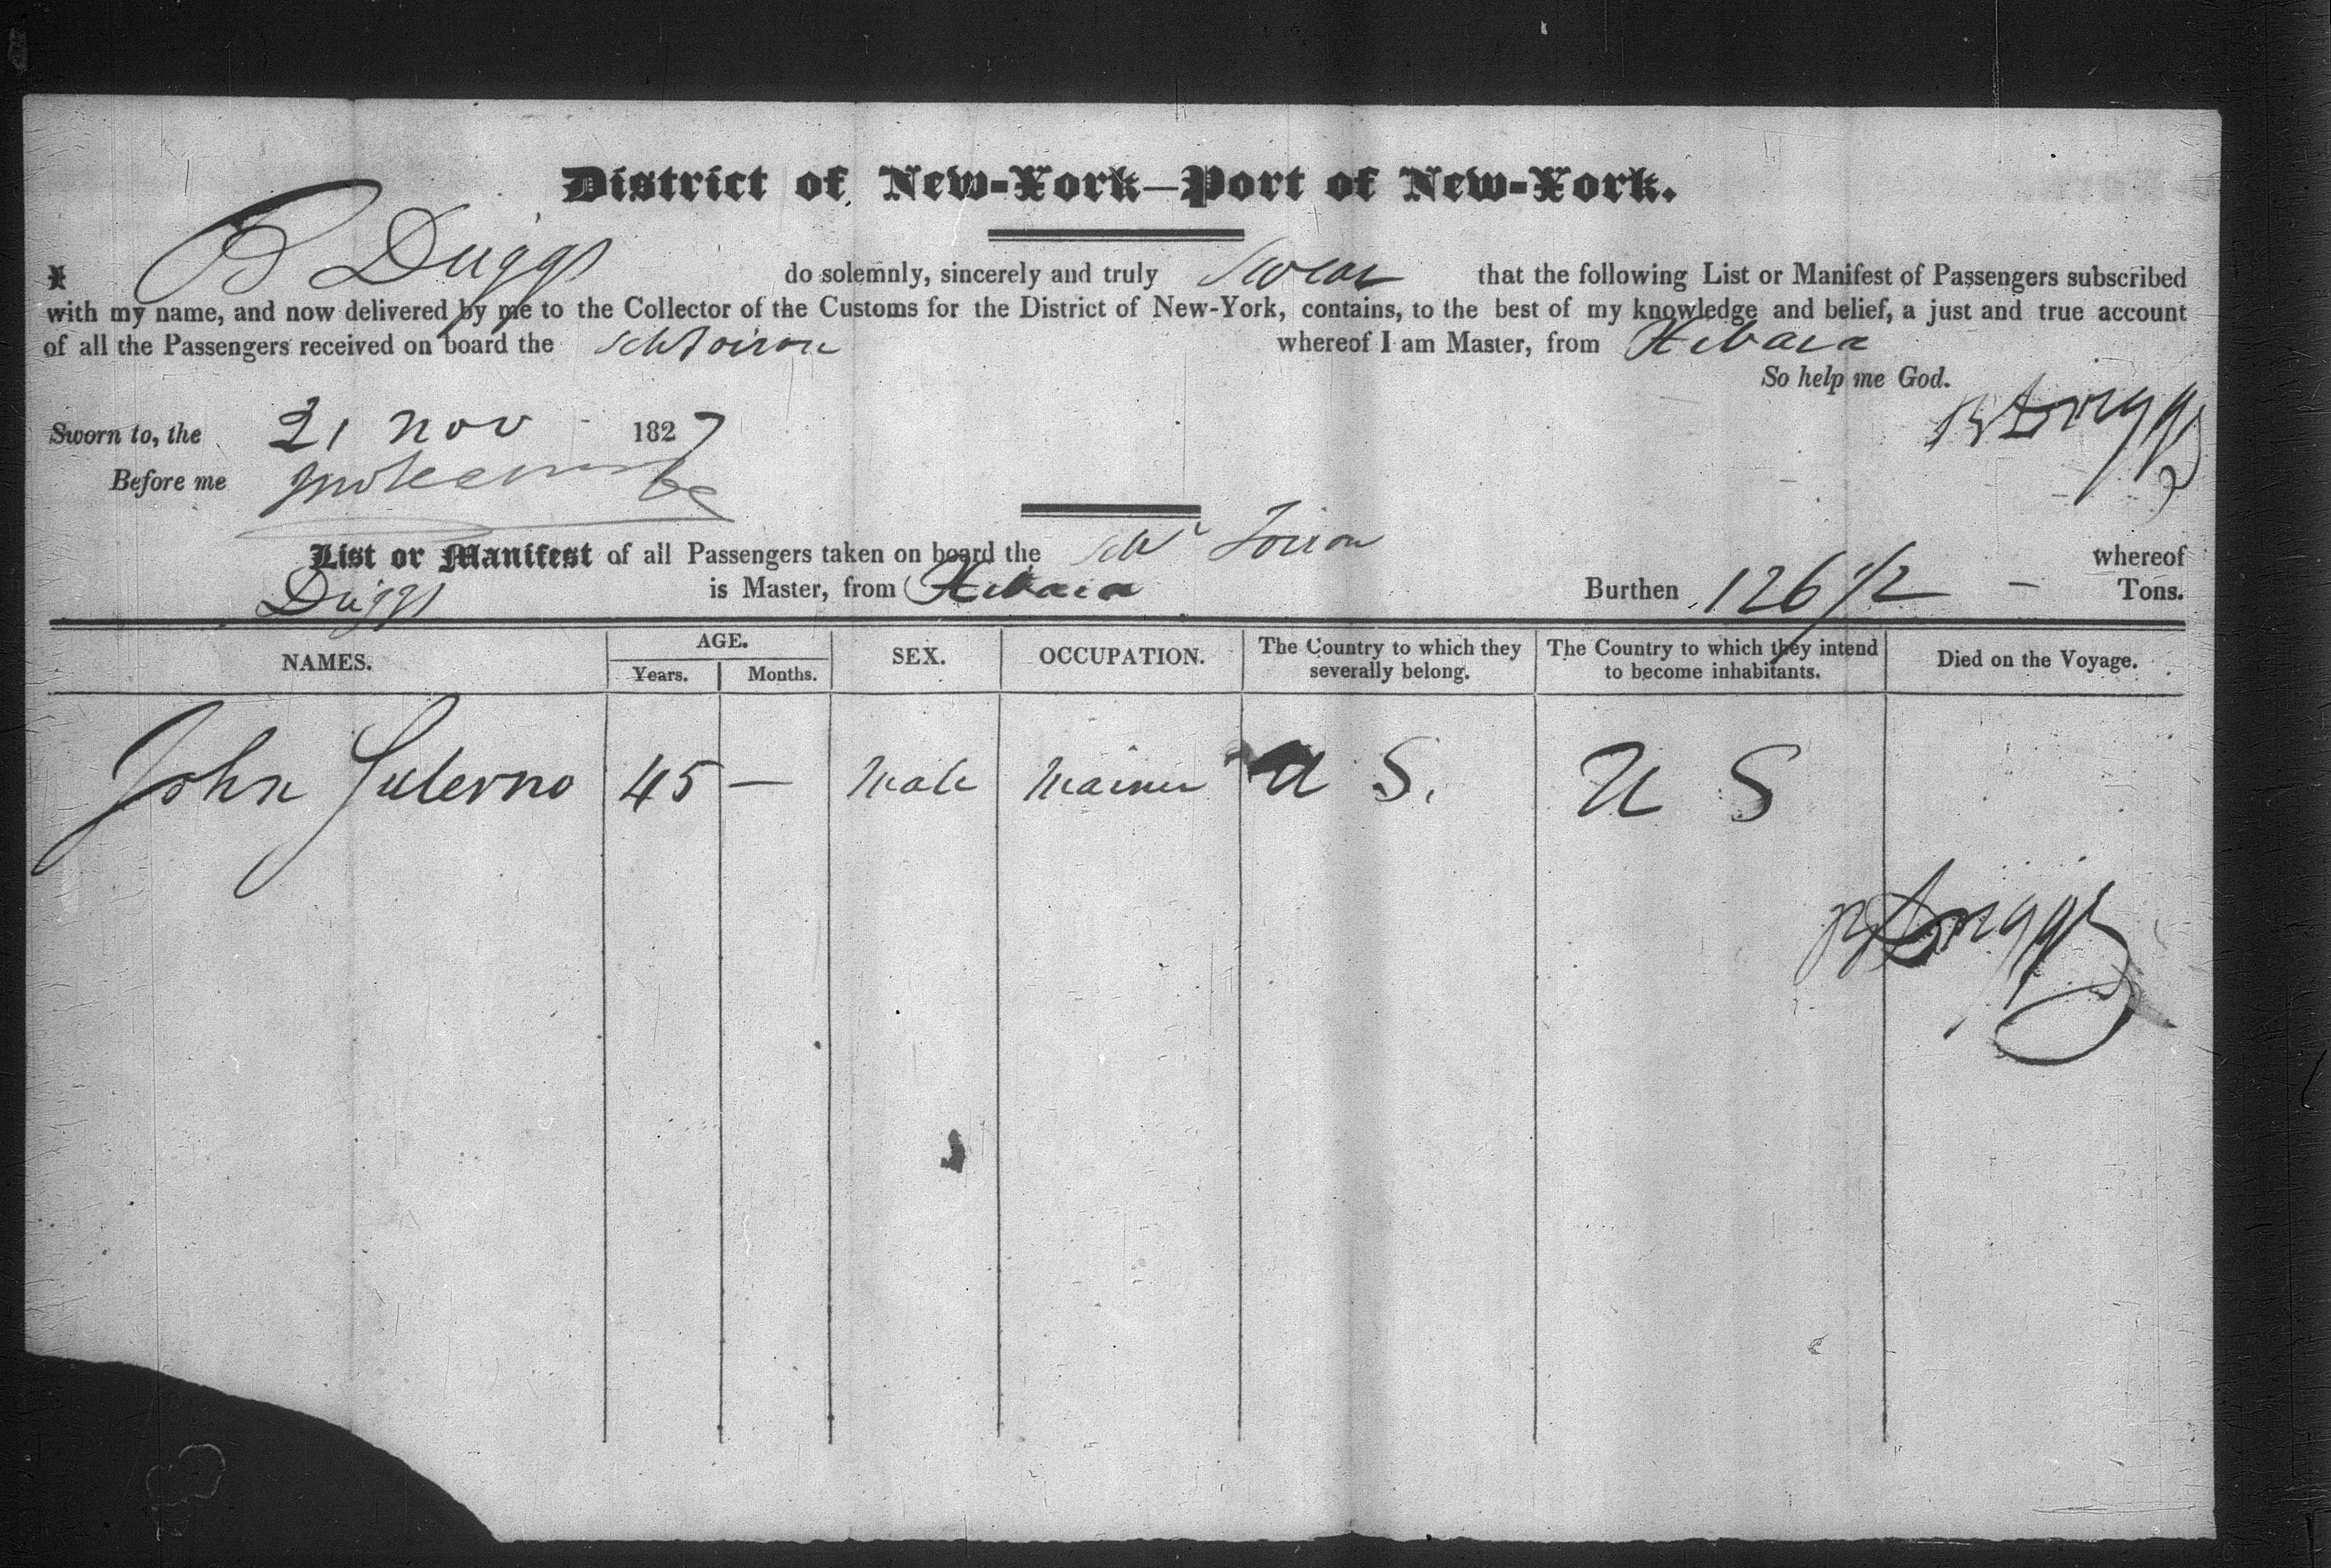 District of New-York—Port of New-York.
I B Driggs do solemnly, sincerely and truly swear that the following List or Manifest of Passengers subscribed
with my name, and now delivered by me to the Collector of the Customs for the District of New-York, contains, to the best of my knowledge and belief, a just and true account
of all the Passengers received on board the Sch whereof I am Master, from
So help me God.
B Driggs
Sworn to, the 21 Nov 1827
Before me
List or Manifest of all Passengers taken on board the Schr whereof
Driggs is Master, from Burthen 126 1/2 Tons.
NAMES. AGE. Years. Months. SEX. OCCUPATION. The Country to which they severally belong. The Country to which they intend to become inhabitants. Died on the Voyage.
John Salerno 45 — Male Mariner U S. U S
B Driggs